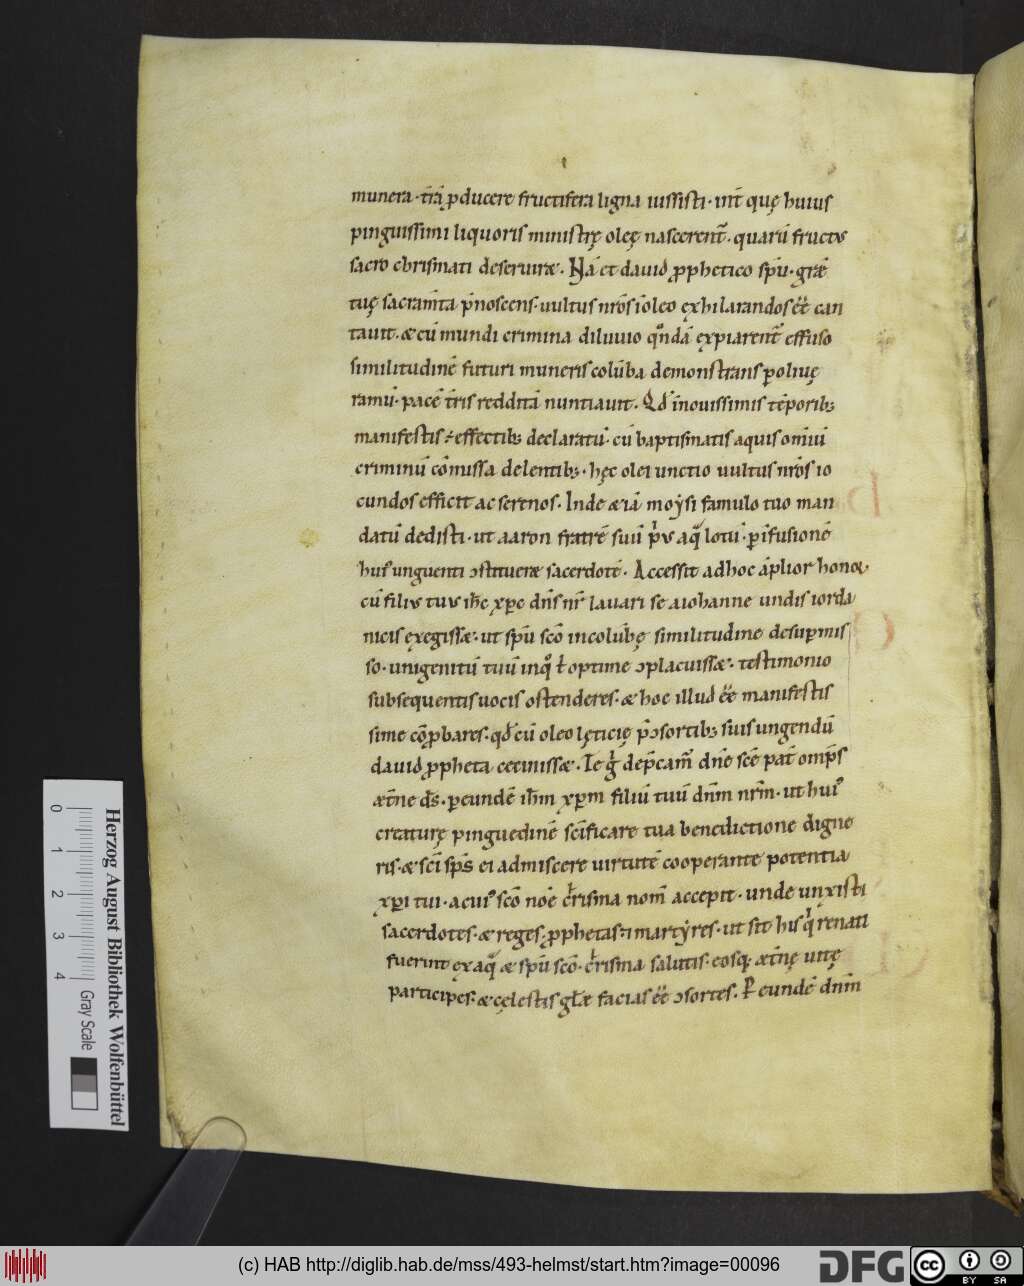 munera · t̄rā ꝓducere fructifera ligna iussisti · int̄ quę huius
pinguissimi liquoris ministrę oleę nascerent̄ . quarū fructus
sacro chrismati deseruiræ . Nā et dauid ꝓphetico sp̄u · gr̄æ
tuę sacram̄ta p̄noscens · uultus nr̄os ī oleo exhilarandos ēē can
tauit . æ cū mundi crimina diluuio qͦndā ęxpiarent̄ effuso
similitudinē futuri muneris colūba demonstrans ꝑ oliuę
ramū · pacē t̄ris redditā nuntiauit . Qd̄ ī nouissimis tēporibꝫ
manifestis ÷ effectibꝫ declaratū · cū baptismatis aquis omīū
criminū cōmissa delentibꝫ · hęc olei unctio uultus nr̄os io
cundos efficit ac serenos . Inde æ iā moẏsi famulo tuo man
datū dedisti · ut aaron fratrē suū pͥus aqͣ lotū · ꝑ īfusionē
huiꝰ unguenti ↄstitueræ sacerdotē . Accessit ad hoc āplior honor
cū filius tuus ih̄c xp̄c dn̄s nr̄ lauari se a iohanne undis iorda
nicis ęxegissæ · ut sp̄u sc̄o in colūbę similitudine desuꝑ mis
so · unigenitū tuū in qͦ t̄ optime ↄplacuissæ · testimonio
subsequentis uocis ostenderes · æ hoc illud ēē manifestis
sime cōꝓbares · qd̄ cū oleo lęticię p̄ ↄsortibꝫ suis ungendū
dauid ꝓpheta cecinissæ . Te gͥ dep̄camur̄ dn̄e sc̄e pat̄ omp̄s
æt̄ne ds̄ · ꝑ eundē ih̄m xp̄m filiū tuū dn̄m nr̄m · ut huiꝰ
creaturę pinguedinē sc̄ificare tua benedictione digne
ris · æ sc̄i sp̄s ei admiscere uirtutē cooperante potentia
xp̄i tui · a cuiꝰ sc̄o nōe chrisma nom̄ accepit · unde unxisti
sacerdotes · æ reges · ꝓphetas · ⁊ martẏres · ut sit his qͥ renati
fuerint ęx aqͣ æ sp̄u sc̄o · chrisma salutis · eosqꝫ æt̄nę uitę
participes · æ cęlestis gl̄æ facias ēē ↄsortes . P eundē dn̄m
0
1
2
3
4
Gray Scale
Herzog August Bibliothek Wolfenbüttel
(c) HAB http://diglib.hab.de/mss/493-helmst/start.htm?image=00096
DFG
cc
BY SA